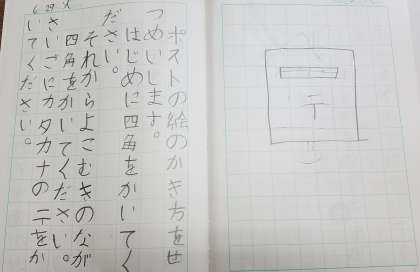 ポストの絵のかき方をせ
つめいします。
はじめに四角をかいてく
ださい。
それからよこむきのなが
四角をかいてください。
さいごにカタカナのテをか
いてください。
〒